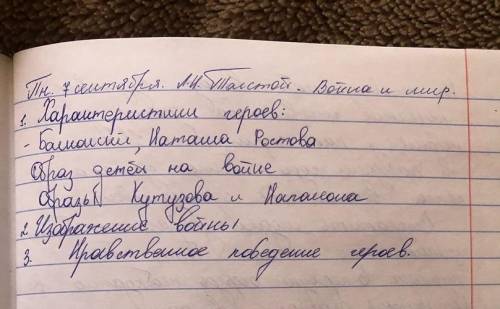 Пн. 7 сентября. Л.Н. Толстой. Война и мир.
1. Характеристики героев:
- Болконский, Наташа Ростова
Образ детей на войне
Образы Кутузова и Наполеона
2. Изображение войны
3. Нравственное поведение героев.